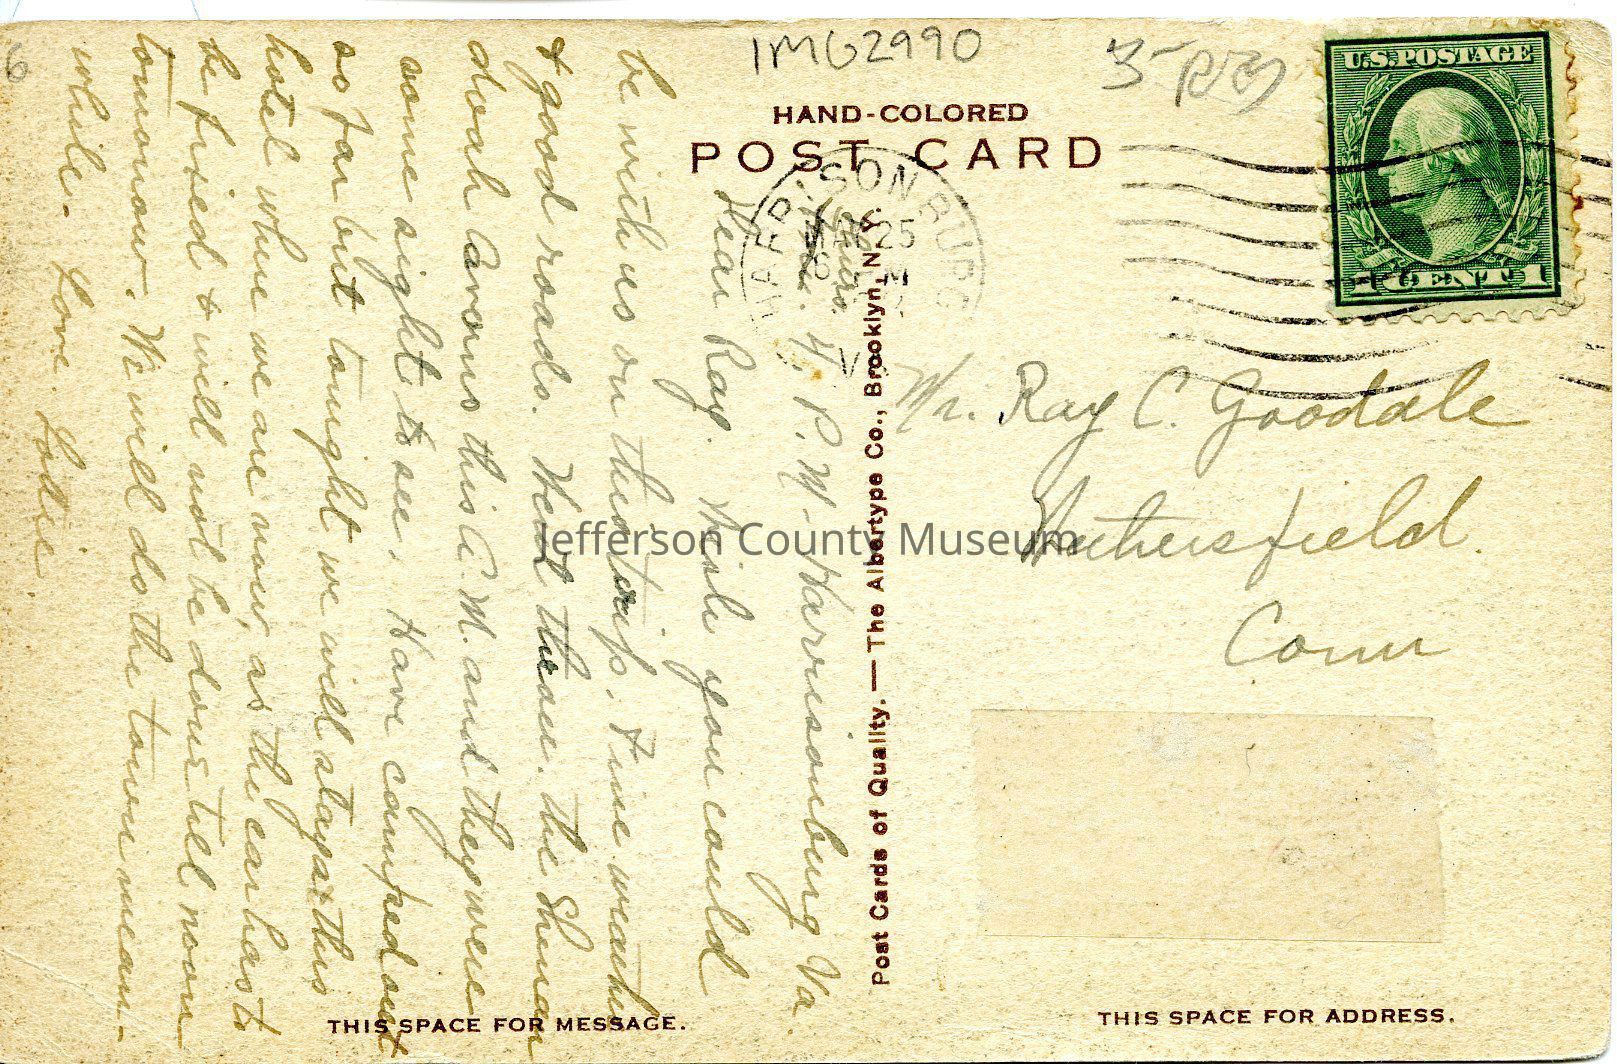 IMG2990
HAND-COLORED
POST CARD
U.S. POSTAGE
1 CENT 1
HARRISONBURG
25
M
V
4. P. M. Harrisonburg Va
Dear Ray. Wish you could
be with us on this trip. Fine weather
& good roads. Went thru the Shenan
doah Caverns this A. M. and they were
some sight to see. Have camped out
so far but tonight we will stay at this
hotel where we are now, as the car has to
be fixed & will not be done till noon
tomorrow. We will do the town mean-
while. Love
Mr. Ray C. Goodale
Wethersfield.
Conn
Post Cards of Quality. — The Albertype Co., Brooklyn, N.Y.
THIS SPACE FOR MESSAGE.
THIS SPACE FOR ADDRESS.
Jefferson County Museum
6